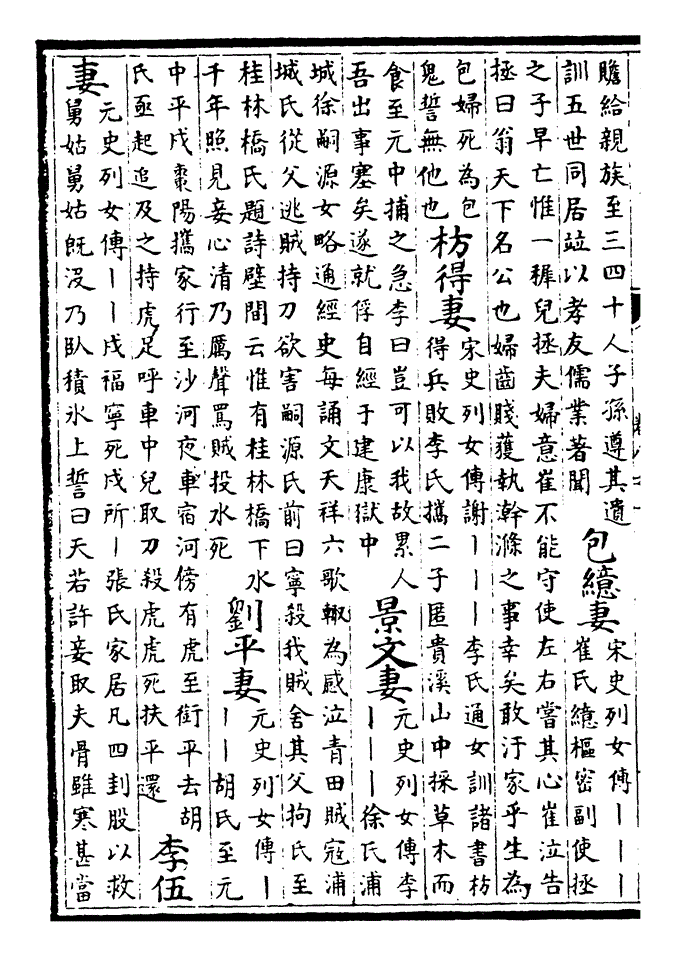 贍給親族至三四十人子孫遵其遺
訓五世同居竝以孝友儒業著聞
包繶妻
宋史列女傳丨丨丨
崔氏繶樞密副使拯
之子早亡惟一穉兒拯夫婦意崔不能守使左右嘗其心崔泣告
拯曰翁天下名公也婦齒賤獲執幹滌之事幸矣敢汙家乎生為
包婦死為包
鬼誓無他也
枋得妻
宋史列女傳謝丨丨丨李氏通女訓諸書枋
得兵敗李氏攜二子匿貴溪山中採草木而
食至元中捕之急李曰豈可以我故累人
吾出事塞矣遂就俘自經于建康獄中
景文妻
元史列女傳李
丨丨丨徐氏浦
城徐嗣源女略通經史每誦文天祥六歌輒為感泣青田賊寇浦
城氏從父逃賊持刀欲害嗣源氏前曰寧殺我賊舍其父拘氏至
桂林橋氏題詩壁間云惟有桂林橋下水
千年照見妾心清乃厲聲罵賊投水死
劉平妻
元史列女傳丨
丨丨胡氏至元
中平戍棗陽攜家行至沙河夜車宿河傍有虎至銜平去胡
氏亟起追及之持虎足呼車中兒取刀殺虎虎死扶平還
李伍
妻
元史列女傳丨丨戍福寧死戍所丨張氏家居凡四刲股以救
舅姑舅姑既沒乃臥積氷上誓曰天若許妾取夫骨雖寒甚當